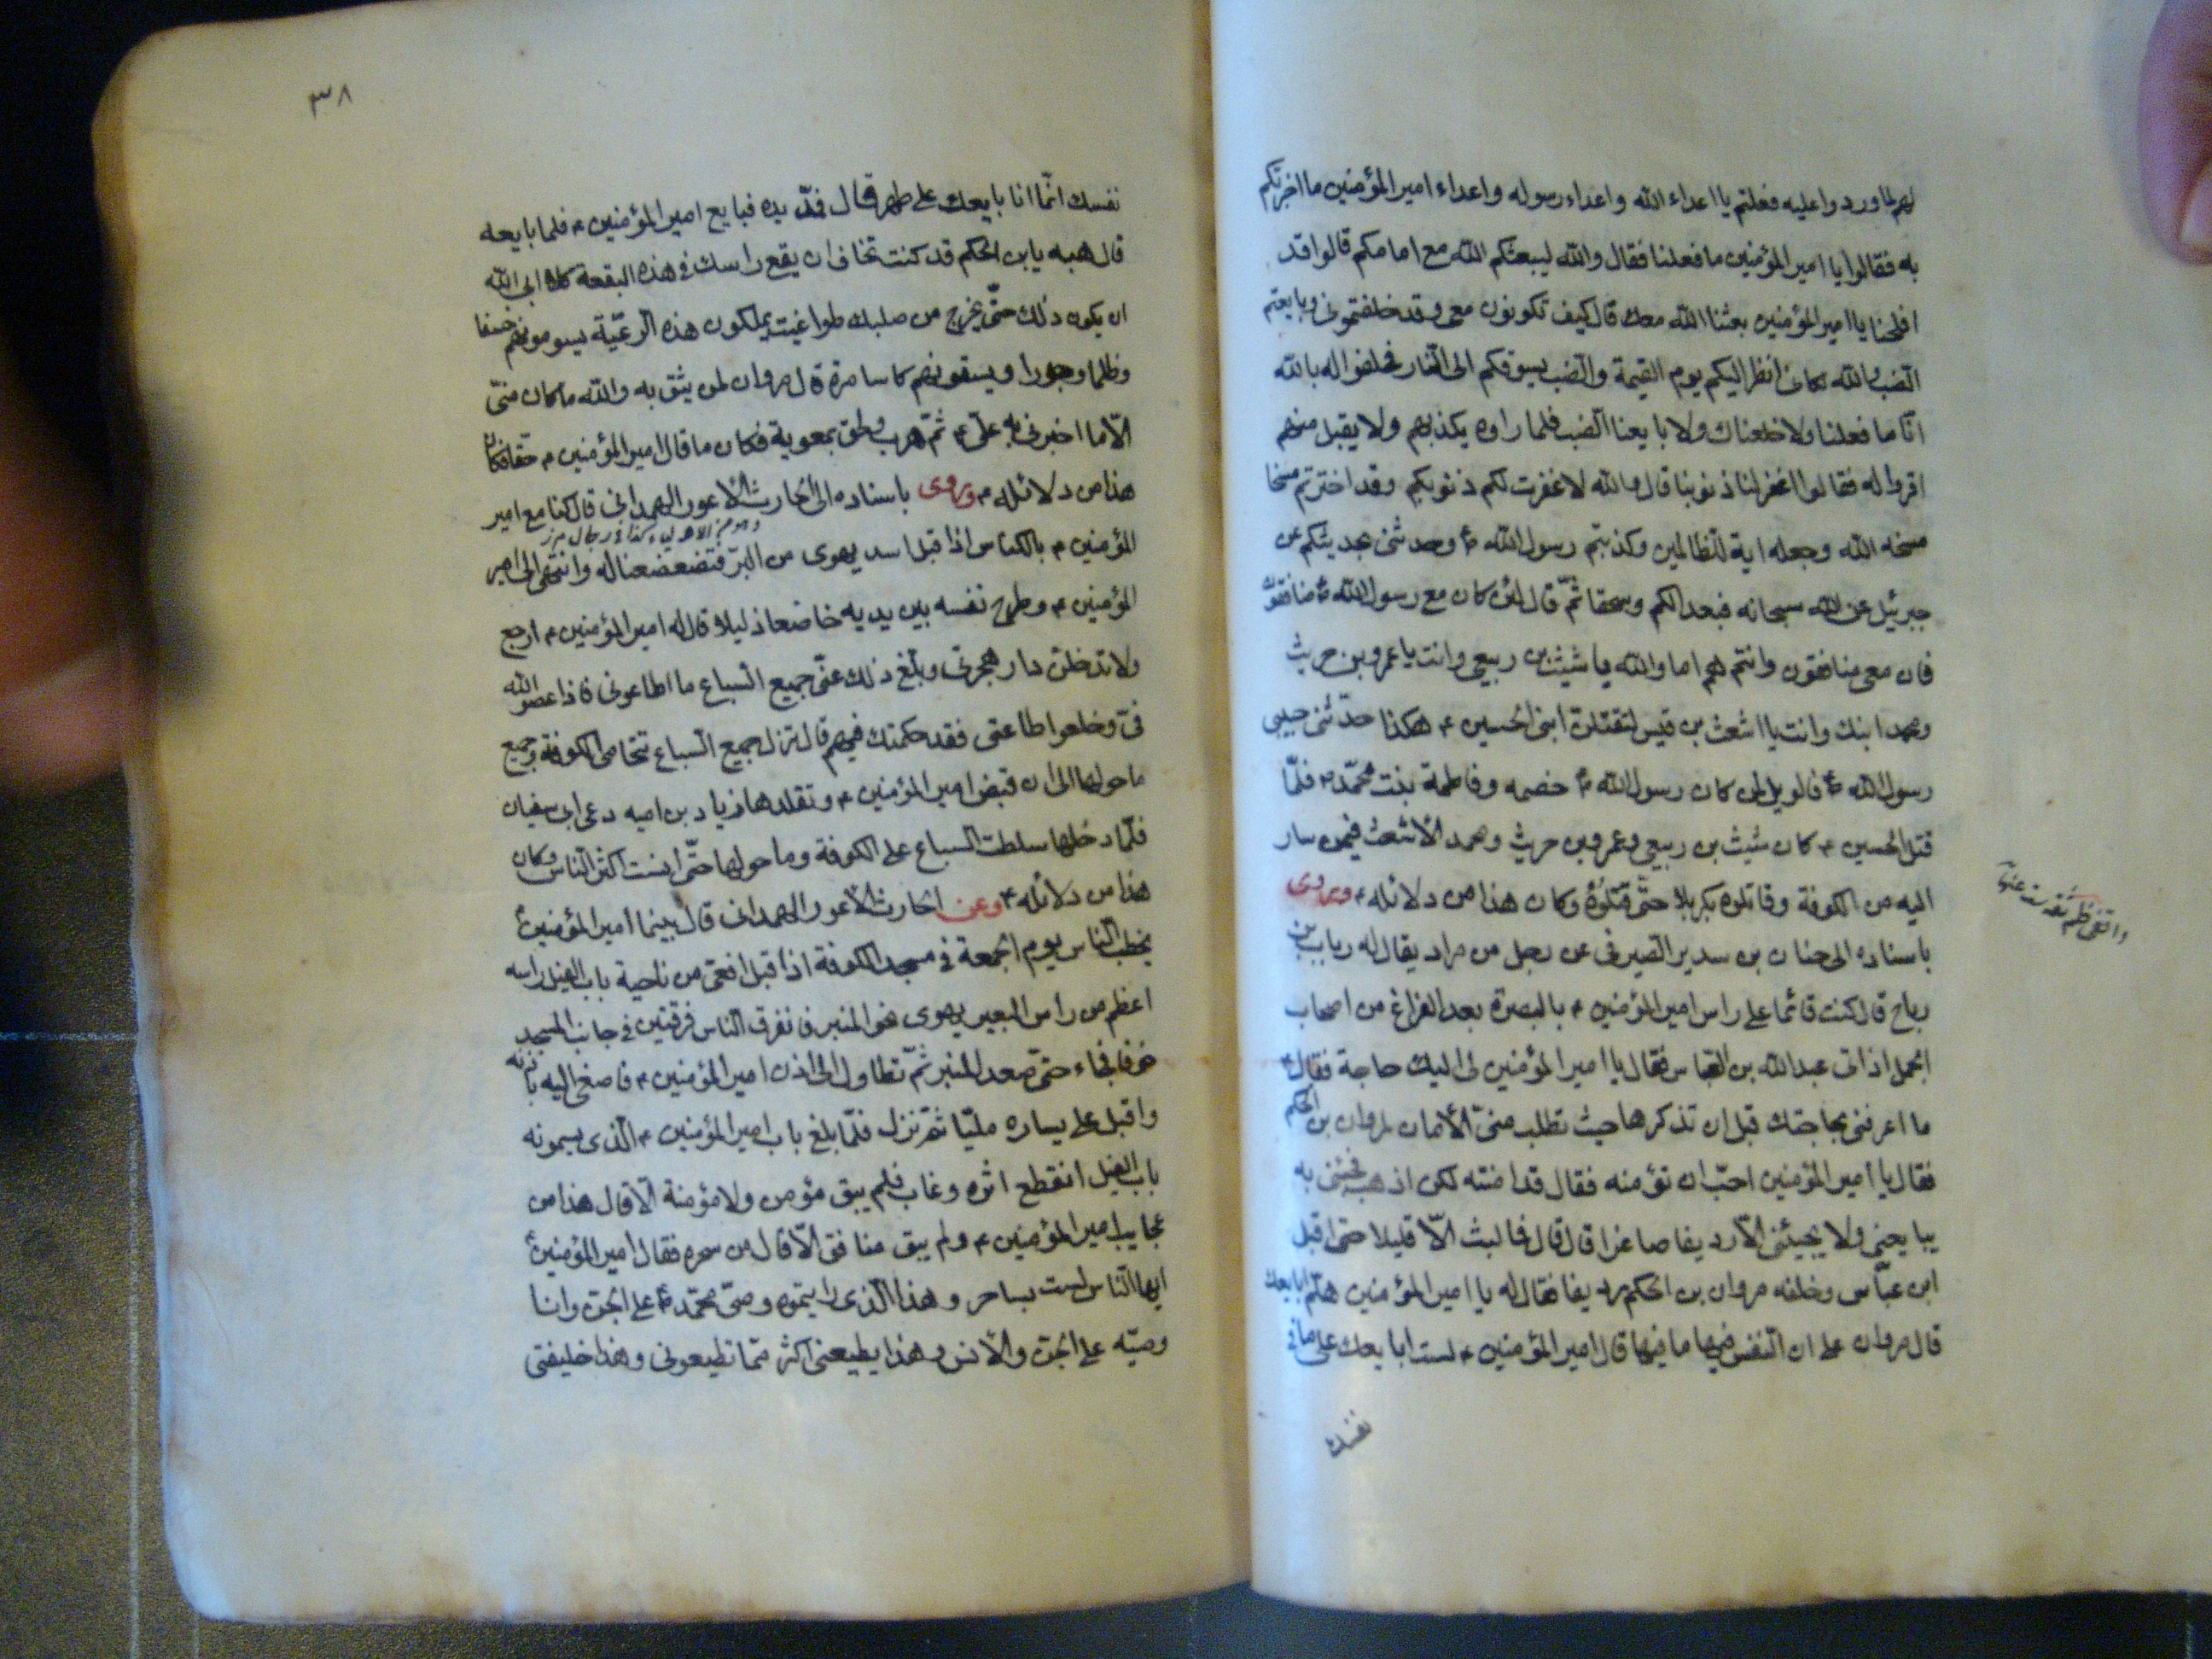 لهم لما وردوا عليه فعلتم يا اعداء الله واعداء رسوله واعداء امير المؤمنين ما اخبرتكم
به فقالوا يا امير المؤمنين ما فعلنا فقال والله ليبعثكم الله مع امامكم قالوا قد
افلحنا يا امير المؤمنين بعثنا الله معك قال كيف تكونون معي وقد خلفتموني وبايعتم
الضب والله لكاني انظر اليكم يوم القيمة والضب يسوقكم الى النار فحلفوا له بالله
انا ما فعلنا ولا خلعناك ولا بايعنا الضب فلما راوه يكذبهم ولا يقبل منهم
اقروا له فقالوا اغفر لنا ذنوبنا قال والله لا غفرت لكم ذنوبكم وقد اخترتم مسخا
مسخه الله وجعله اية للظالمين وكذبتم رسول الله ص وحدثني بحديثكم عن
جبرئيل عن الله سبحانه فبعدا لكم وسحقا ثمّ قال لئن كان مع رسول الله ص منافقون
فان معي منافقون وانتم هم اما والله يا شيث بن ربعي وانت يا عمرو بن حريث
ومحمد ابنك وانت يا اشعث بن قيس لتقتلن ابني الحسين ع هكذا حدّثني حبيبي
رسول الله ص فالويل لمن كان رسول الله ص خصمه وفاطمة بنت محمّد ص فلمّا
قتل الحسين ع كان شيث بن ربعي وعمرو بن حريث ومحمد الاشعث فيمن سار
اليه من الكوفة وقاتلوه بكربلا حتّى قتلوه وكان هذا من دلائله ع وروى
باسناده الى حنان بن سدير الصيرفي عن رجل من مراد يقال له رباب بن
رياح قال كنت قائما على راس امير المؤمنين ع بالبصرة بعد الفراغ من اصحاب
الجمل اذ اتى عبد الله بن العباس فقال يا امير المؤمنين لي اليك حاجة فقال ع
ما اعرفني بحاجتك قبل ان تذكرها حيث تطلب منّي الأمان لمروان بن الحكم
فقال يا امير المؤمنين احبّ ان تؤمنه فقال قد امنته لكن اذهب فجئني به
يبايعني ولا يجيئني الّا رديفا صاغرا قال قال فما لبث الّا قليلا حتى اقبل
ابن عبّاس وخلفه مروان بن الحكم رديفا فقال له يا امير المؤمنين هلمّ ابايعك
قال مروان على ان النفس فيها ما فيها قال امير المؤمنين ع لست ابايعك على ما في
نفسك
٣٨
نفسك انّما انا بايعك على ظهر قال فمدّ يده فبايع امير المؤمنين ع فلما بايعه
قال هبه يابن الحكم قد كنت تخاف ان يقع راسك في هذه البقعة كلا ابى الله
ان يكون ذلك حتّى يخرج من صلبك طواغيت يملكون هذه الرعيّة يسومونهم خسفا
وظلما وجورا ويسقونهم كاسا مرة قال مروان لمن يثق به والله ما كان منّي
الّا ما اخبرني به عليّ ع ثمّ هرب ولحق بمعوية فكان ما قال امير المؤمنين ع حقا فكان
هذا من دلائله ع وروى باسناده الى الحارث الأعور الهمداني قال كنا مع امير
المؤمنين ع بالكناس اذا قبل اسد يهوى من البرّ فتضعضعنا له وانتهى الى امير
المؤمنين ع وطرح نفسه بين يديه خاضعا ذليلا قال له امير المؤمنين ع ارجع
ولا تدخلن دار هجرتي وبلّغ ذلك عنّي جميع السباع ما اطاعوني فاذا عصوا الله
فيّ وخلعوا طاعتي فقد حكمتك فيهم قال نزل جميع السباع تتحاصى الكوفة وجميع
ما حولها الى ان قبض امير المؤمنين ع وتقلدها زياد بن اميه دعى ابي سفيان
فلمّا دخلها سلطت السباع على الكوفة وما حولها حتّى افنت اكثر الناس وكان
هذا من دلائله ع وعن الحارث الأعور الهمداني قال بينما امير المؤمنين ع
يخطب الناس يوم الجمعة في مسجد الكوفة اذا قبل افعى من ناحية باب الفيل راسه
اعظم من راس البعير يهوى نحو المنبر فانفرق الناس فرقتين في جانب المسجد
خوفا فجاء حتّى صعد المنبر ثمّ تطاول الى اذن امير المؤمنين ع فاصغى اليه باذنه
واقبل على يساره مليّا ثمّ نزل فلمّا بلغ باب امير المؤمنين ع الّذي يسمونه
باب الفيل انقطع اثره وغاب فلم يبق مؤمن ولا مؤمنة الّا قال هذا من
عجايب امير المؤمنين ع ولم يبق منافق الّا قال من سحره فقال امير المؤمنين ع
ايها الناس لست بساحر وهذا الذي رايتموه وصيّ محمّد ص على الجن وانا
وصيّه على الجن والأنس وهذا يطيعني اكثر ممّا تطيعوني وهذا خليفتي